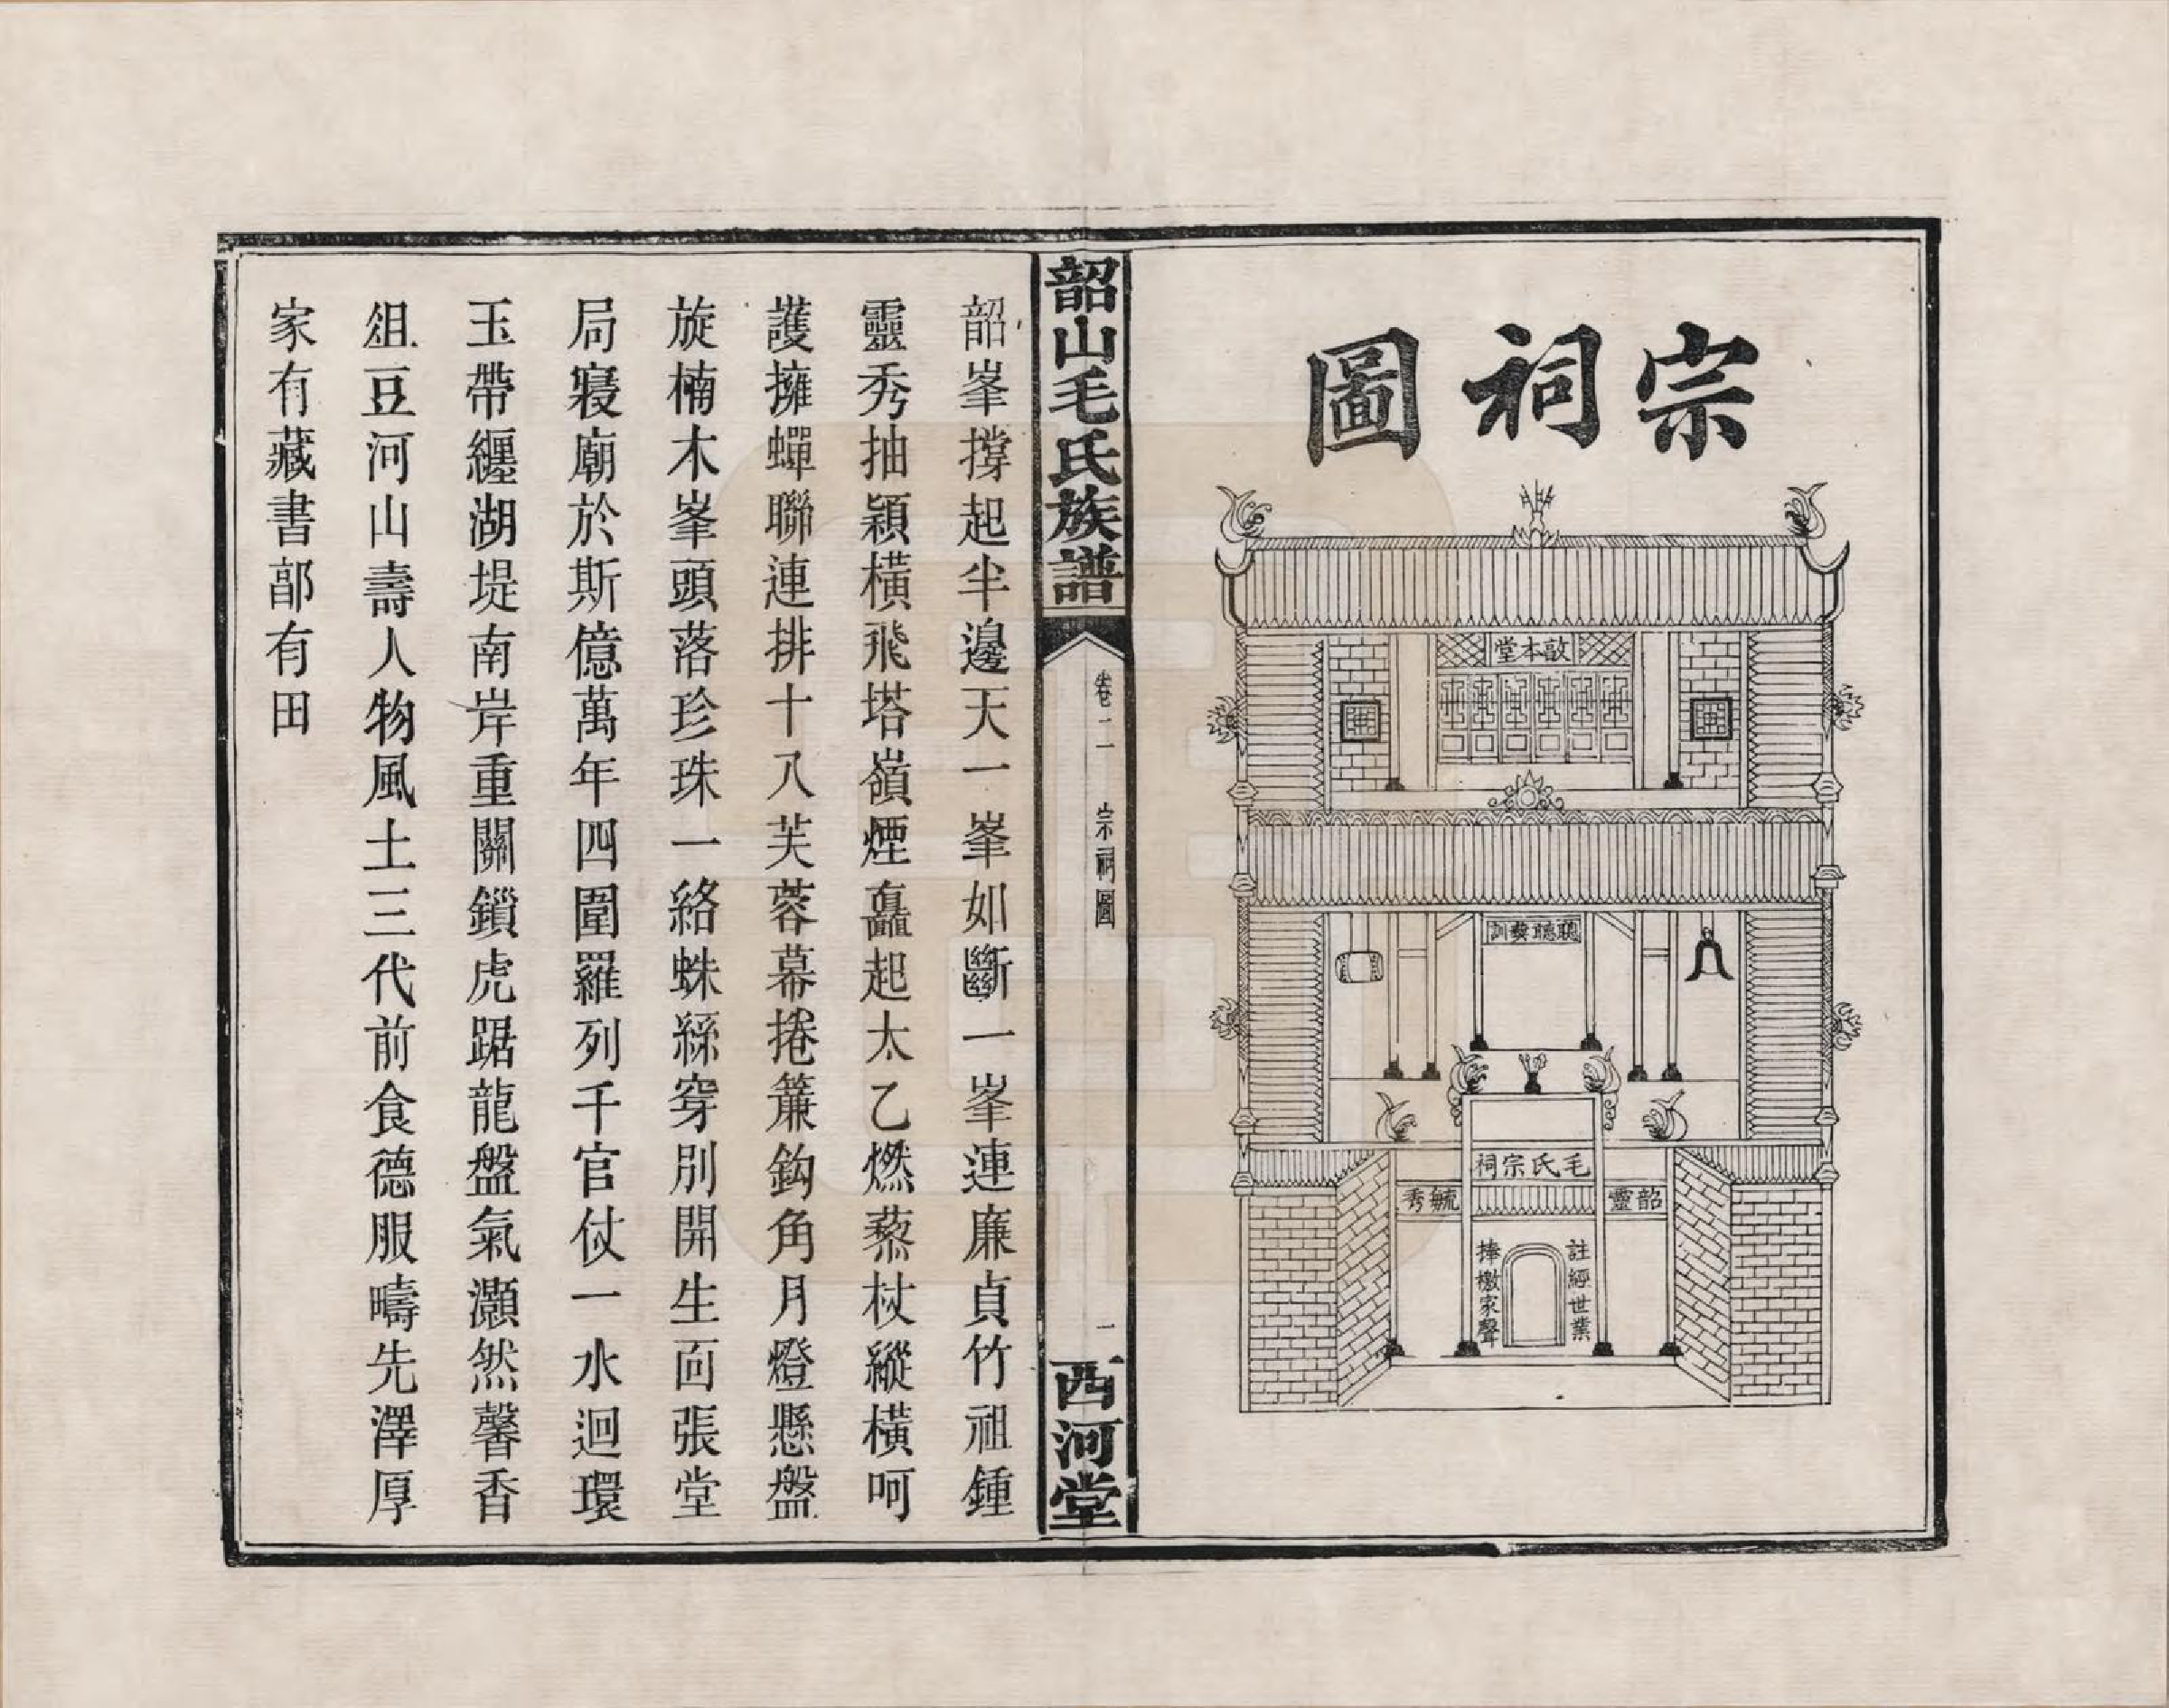 宗祠圖
敦本堂
聰聽彝訓
毛氏宗祠
韶靈
毓秀
註經世業
捧檄家聲
韶山毛氏族譜
卷二
宗祠圖
一
西河堂
韶峯撐起半邊天一峯如斷一峯連廉貞竹祖鍾
靈秀抽穎橫飛塔嶺煙矗起太乙燃藜杖縱橫呵
護擁蟬聯連排十八芙蓉幕捲簾鈎角月燈懸盤
旋楠木峯頭落珍珠一絡蛛絲穿別開生面張堂
局寢廟於斯億萬年四圍羅列千官仗一水迴環
玉帶纏湖堤南岸重關鎖虎踞龍盤氣灝然馨香
俎豆河山壽人物風土三代前食德服疇先澤厚
家有藏書郶有田